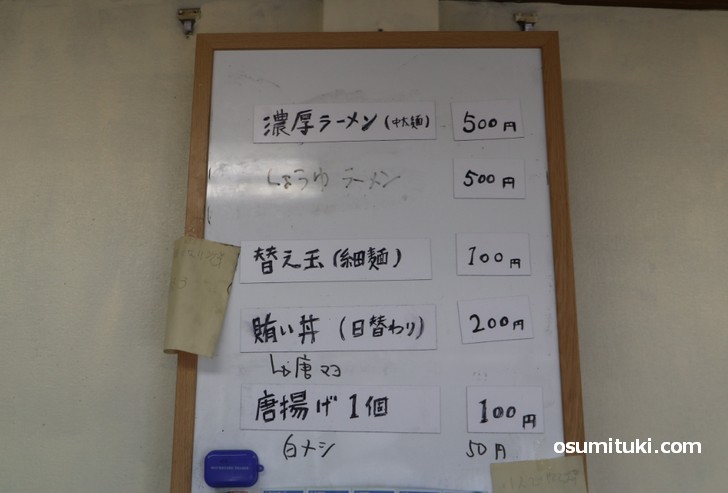 濃厚ラーメン(中太麺) 500円
しょうゆ ラーメン 500円
替え玉(細麺) 100円
賄い丼 (日替わり) 200円
唐マヨ
唐揚げ1個 100円
白メシ 50円
osumituki.com